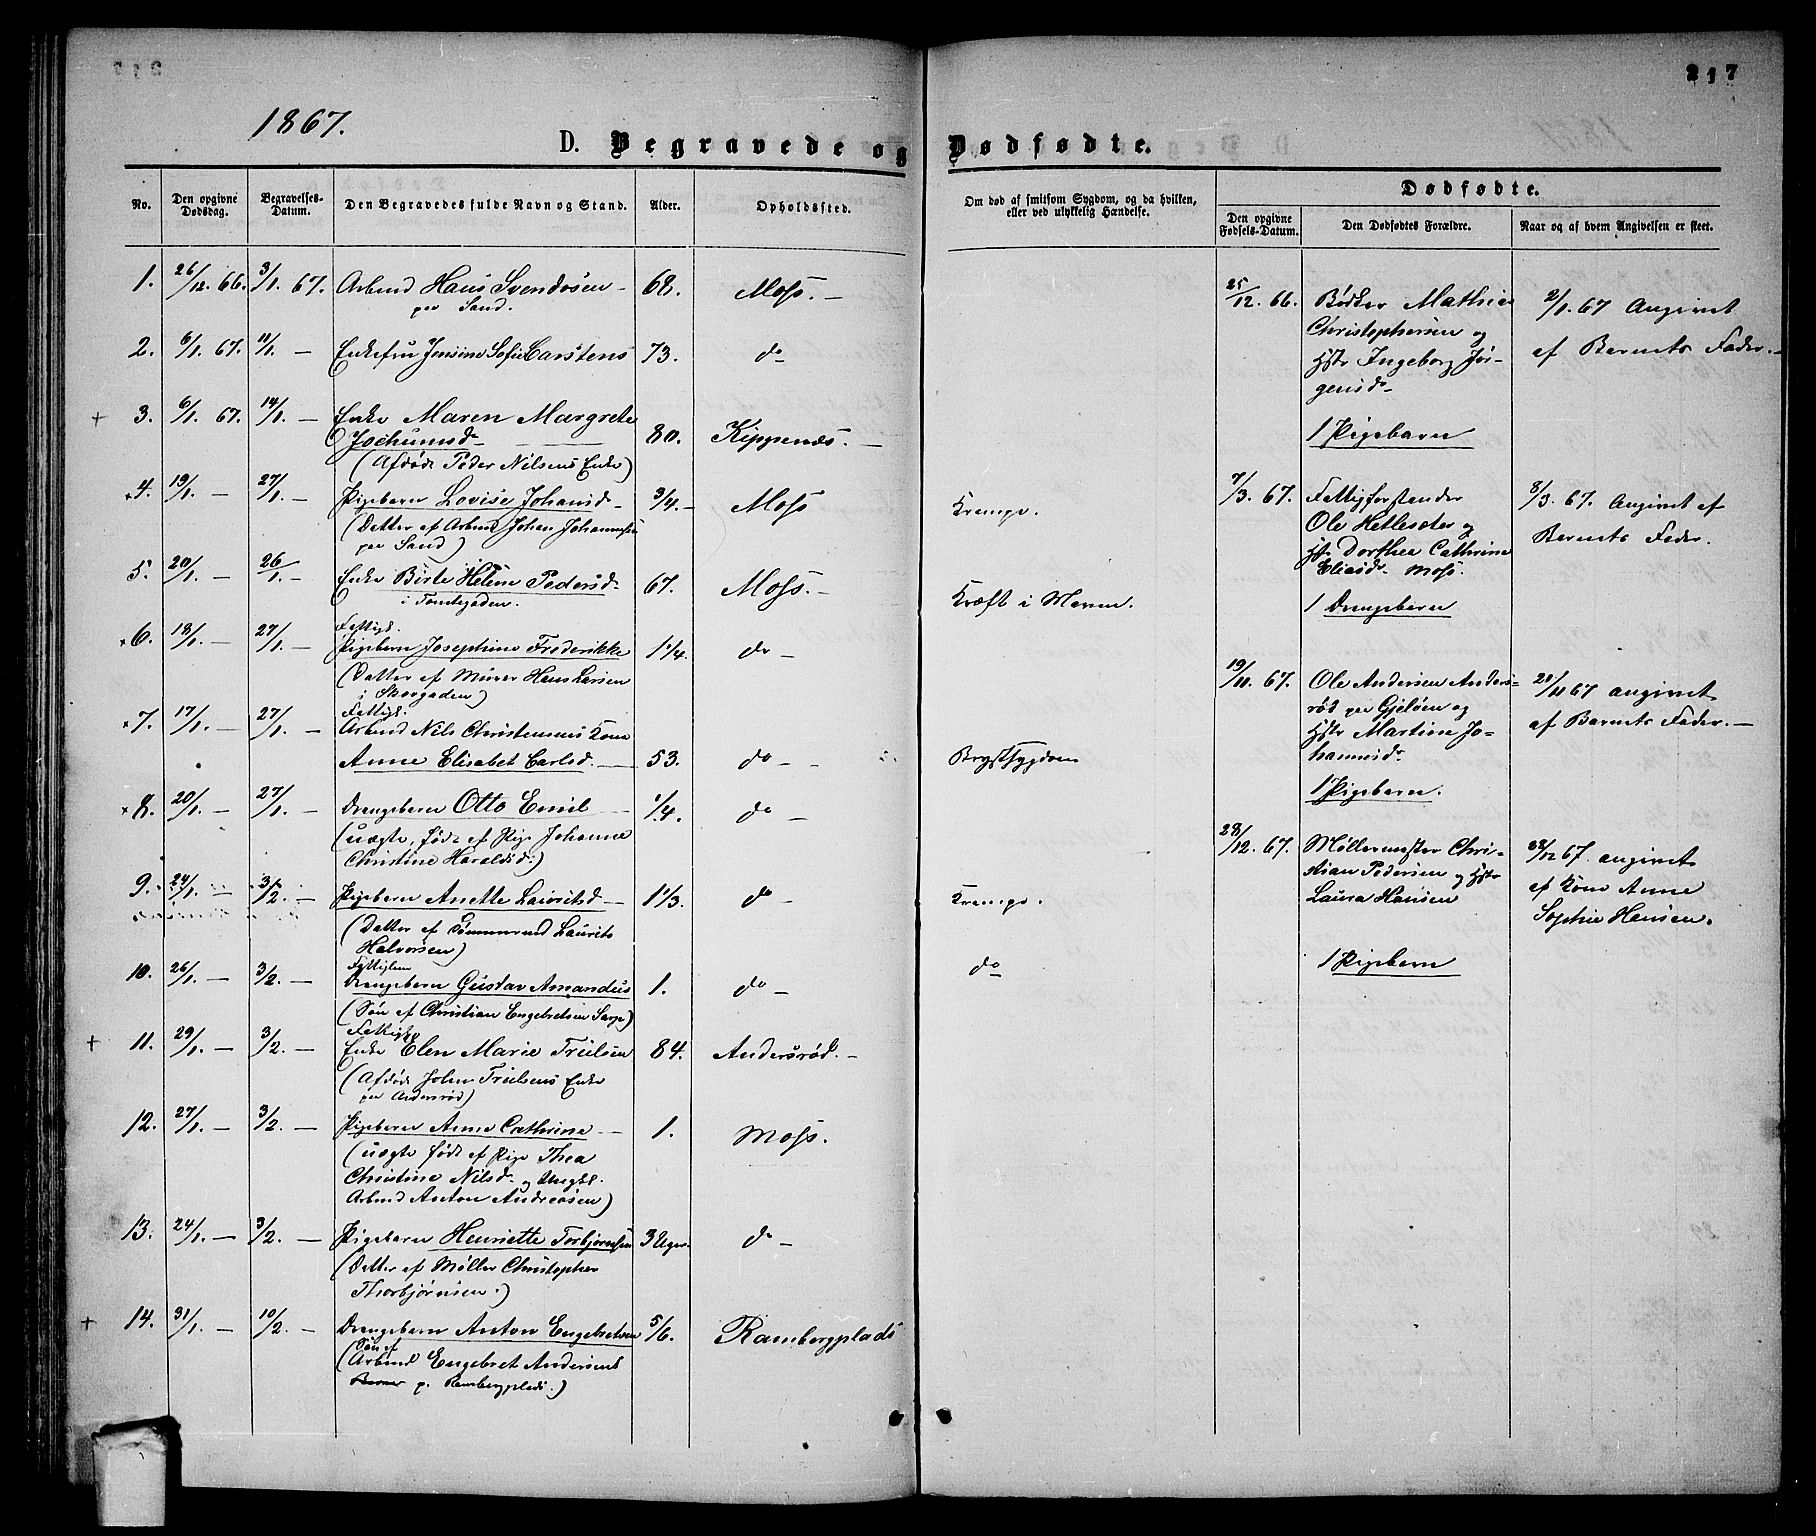 217
1867.
D. Begravede og Dødfødte.
No.
Den opgivne Dødsdag.
Begravelses-Datum.
Den Begravedes fulde Navn og Stand.
Alder.
Opholdssted.
Om død af smitsom Sygdom, og da hvilken,
eller ved ulykkelig Hændelse.
Dødfødte.
Den opgivne Fødsels-Datum.
Den Dødfødtes Forældre.
Naar og af hvem Angivelsen er skeet.
1. 26/12. 66. 3/1. 67. Arbmd Hans Svendsen 68. Moss.
per Sand.
2. 6/1. 67. 11/1. — Enkefru Jensine Sofie Carstens 73. do
3. 6/1. 67. 14/1. — Enke Maren Margrete
Jochumsd. 80. Kippenæs.
(Afdøde Peder Nilsens Enke)
4. 19/1. — 27/1. — Pigebarn Lovise Johansd. 3/4. Moss Krempe.
(Datter af Arbmd Johan Johannesen
per Sand)
5. 20/1. — 26/1. — Enke Birte Helene Pedersd. 67. Moss. Kræft i Maven.
i Tomtegaden.
Fattigl.
6. 18/1. — 27/1. — Pigebarn Josephine Frederikke 1 1/4. do
(Datter af Murer Hans Larsen
i Skovgaden)
Fattigl.
7. 17/1. — 27/1. — Arbmd Nils Christensens Kone
Anne Elisabet Carlsd. 53. do Brystsygdom
8. 20/1. — 27/1. — Drengebarn Otto Emil 1/4. do
(uægte, født af Pige Johanne
Christine Haraldsd.)
9. 24/1. — 3/2. — Pigebarn Anette Lauritsd 1 1/3. do Krempe.
(Datter af Tømmermd Laurits
Halvorsen)
Fattiglem
10. 26/1. — 3/2. — Drengebarn Gustav Amandus 1. do do
(Søn af Christian Engebretsen)
Fattigl.
11. 29/1. — 3/2. — Enke Elen Marie Trulsen 84. Andersrød.
(Afdøde John Trulsens Enke
per Andersrød)
12. 27/1. — 3/2. — Pigebarn Anne Cathrine 1. Moss.
(uægte født af Pige Thea
Christine Nilsd. og Ungkl.
Arbmd Anton Andreasen)
13. 24/1. — 3/2. — Pigebarn Henriette Torbjørnsen 3 Uger. do
(Datter af Møller Christopher
Thorbjørnsen.)
14. 31/1. — 10/2. — Drengebarn Anton Engebretsen 5/6. Rambergplads
(Søn af
Arbmd Engebret Andersens
p. Rambergplads.)
25/12. 66. Bødker Mathias 2/1. 67 Angivet
Christophersen og af Barnets Fader.
Hstr Ingeborg Jør-
gensd.
1 Pigebarn
7/3. 67. Fattigforstander 8/3. 67. Angivet af
Ole Hetlesæter og Barnets Fader.
Hstr Dorthea Cathrine
Eliasd. Moss.
1 Drengebarn
19/11. 67. Ole Andersen Anders- 20/11 67 angivet
rød per Gjeløen og af Barnets Fader.
Hstr Martine Jo-
hannesd.
1 Pigebarn.
28/12. 67. Møllermester Chri- 28/12 67. angivet
stian Pedersen og Hstr af Kone Anne
Laura Hansen Sophie Hansen.
1 Pigebarn